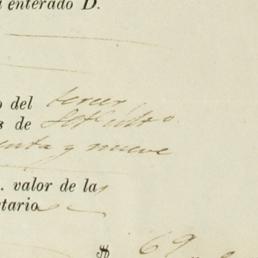 enterado D.
o del tercer
s de
enta y nueve
. valor de la
tario
69